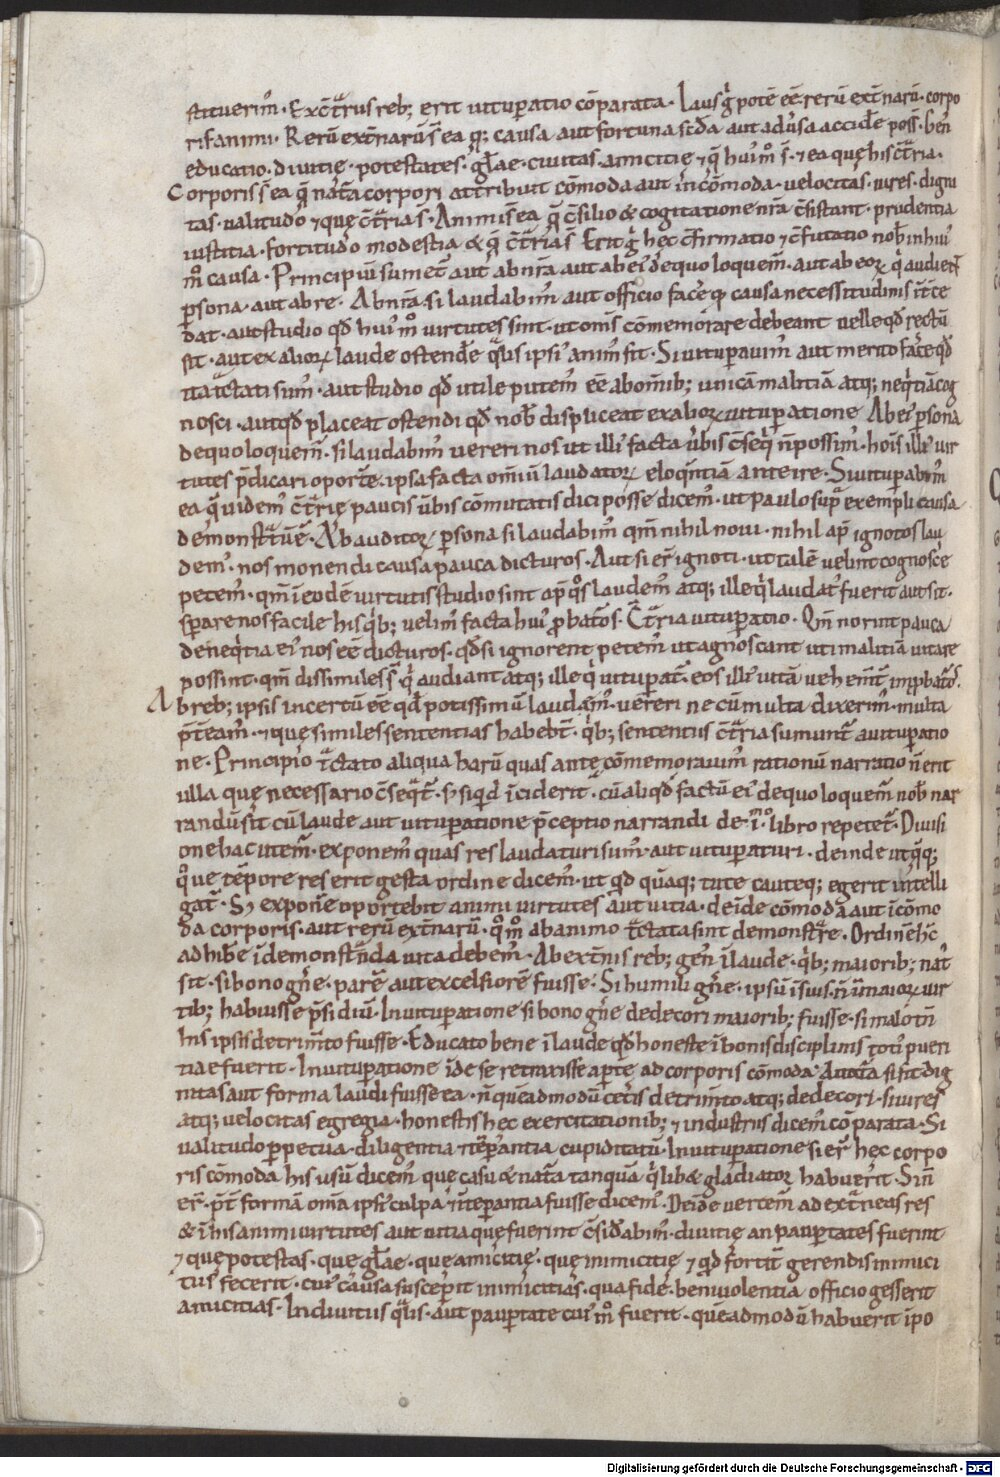 stituerim᷒. Ex c̄trͣiis reb; erit uituperatio cōparata. Laus gͥ potē eē rerū ext̄narū. corpo
ris. animi. Rerū ext̄narū s̄ ea q; casu aut fortuna secūda aut aduersa accidere poss̄. gen᷒
educatio. diuitię. potestates. glꝉae. ciuitas. amicitię ⁊ q̄ hui᷒ mͦ s̄. ⁊ ea quę his c̄trͣia.
Corporis s̄ ea q̄ natͣa corpori attribuit cōmoda aut incōmoda. uelocitas. uires. digni
tas. ualitudo ⁊ quę c̄trͣia s̄. Animi s̄ ea q̄ c̄silio & cogitatione nrͣa c̄stant. prudentia
iustitia. fortitudo modestia & q̄ c̄trͣia s̄. Erit gͥ hęc c̄firmatio ⁊ c̄futatio nob̄ in hui᷒
mͦ causa. Principiū sumet᷒ aut ab nrͣa aut ab ei᷒ de quo loquem᷒. aut ab eoꝝ qͥ audient
ꝑsona. aut ab re. Ab nrͣa si laudabim᷒ aut officio facere q; causa necessitudinis īt̄ce
dat. aut studio qd̄ hui᷒ mͦ uirtutes sint. ut om̄s cōmemorare debeant uelle qd̄ rectū
sit. aut ex alioꝝ laude ostendere qͣlis ipsi᷒ anim᷒ sit. Si uituꝑauim᷒ aut merito facere qd̄
ita tͣctati sum᷒. aut studio qd̄ utile putem᷒ eē ab omīb; unicā malitiā atq; neqͥtiā cog
nosci. aut qd̄ placeat ostendi qd̄ nob̄ displiceat ex alioꝝ uituꝑatione. Ab ei᷒ ꝑsona
de quo loquem᷒. si laudabim᷒ uereri nos ut illi᷒ facta ūbis c̄seqͥ n̄ possim᷒. hoīs illi᷒ uir
tutes p̄dicari oporte. ipsa facta omniū laudatoꝝ eloqn̄tiā anteire. Si uituꝑabim᷒
ea qͣ uidem᷒ c̄trͣie paucis ūbis cōmutatis dici posse dicem᷒. ut paulo supͣ exempli causa
demonstͣtū ē. Ab auditoꝝ ꝑsona si laudabim᷒ qm̄ nihil noui. nihil ap̄ ignotos lau
dem᷒. nos monendi causa pauca dicturos. Aut si er̄ ignoti. ut talē uelint cognosce
petem᷒. qm̄ ī eodē uirtutis studio sint ap̄ qͦs laudem᷒ atq; ille qͥ laudat᷒ fuerit aut sit.
sꝑare nos facile his qͥb; uelim᷒ facta hui᷒ ꝓbatͦs. C̄trͣia uituꝑatio. Qm̄ norint pauca
de neqͥtia ei᷒ nos eē dicturos. qd̄ si ignorent petem᷒ ut agnoscant uti malitiā uitare
possint. qm̄ dissimiles s̄ qͥ audiant atq; ille qͥ uituꝑat᷒. eos illi᷒ uitā uehem̄t᷒ improbatͦs.
Ab reb; ipsis incertū eē qd̄ potissimū laudem᷒. uereri ne cū multa dixerim᷒. multa
p̄t̄eam᷒. ⁊ que similes sententias habebt̄. qͥb; sententiis c̄trͣia sumunt᷒ a uituꝑatio
ne. Principio tͣctato aliqua harū quas ante cōmemorauim᷒ rationū narratio n̄ erit
ulla quę necessario c̄seqͣt᷒. s; si qͥd inciderit. cū aliqd̄ factū ei᷒ de quo loquem᷒ nob̄ nar
randū sit cū laude aut uituꝑatione p̄ceptio narrandi de .i.ͦ libro repetet᷒. Diuisi
one hac utem᷒. exponem᷒ quas res laudaturi sum᷒ aut uituꝑaturi. deinde ut q̄q;
qͦue tēpore res erit gesta ordine dicem᷒. ut qͥd qͣmq; tute cauteq; egerit intelli
gat᷒. S; exponere oportebit animi uirtutes aut uitia. deīde cōmoda aut īcōmo
da corporis. aut rerū ext̄narū. qͦmͦ ab animo tͣctata sint demonstͣre. Ordinē hc̄
adhibere ī demonstͣnda uita debem᷒. Ab ext̄nis reb; gen᷒ ī laude. qͥb; maiorib; nat᷒
sit. si bono gn̄e. parē aut excelsiorē fuisse. Si humili gn̄e. ipsū ī suis. n̄ ī maioꝝ uir
tib; habuisse p̄sidiū. In uituꝑatione si bono gn̄e dedecori maiorib; fuisse. si malo tn̄
his ipsis detrimͭo fuisse. Educato bene ī laude qd̄ honeste ī bonis disciplinis toti᷒ pueri
tiae fuerit. In uituꝑatione īde se retraxisse aperte ad corporis cōmoda. A natͣa si sit dig
nitas aut forma laudi fuisse ea. n̄ quēadmodū cet̄is detrimͭo atq; dedecori. si uires
atq; uelocitas egregia. honestis hęc exercitationib; ⁊ industriis dicem᷒ cōparata. Si
ualitudo ꝑpetua. diligentia ⁊ tēꝑantia cupiditatū. In uituꝑatione si er̄ hęc corpo
ris cōmoda his usū dicem᷒ quę casu & natͣa tanquā qͥlib& gladiator habuerit. Sin̄
er̄. p̄t̄ formā om̄ia ipsi᷒ culpa ⁊ ītēꝑantia fuisse dicem᷒. Deīde uertem᷒ ad extͣneas res
& ī his animi uirtutes aut uitia quę fuerint c̄sid̄abim᷒. diuitię an pauꝑtates fuerint
⁊ quę potestas. quę glꝉae. quę amicitię. quę inimicitię ⁊ qͥd fortit᷒ gerendis inimici
tiis fecerit. cui᷒ causa susceꝑit inimicitias. qua fide. beniuolentia officio gesserit
amicitias. In diuitiis qͣlis. aut pauꝑtate cui᷒ mͦ fuerit. quēadmodū habuerit ī po
Digitalisierung gefördert durch die Deutsche Forschungsgemeinschaft - DFG